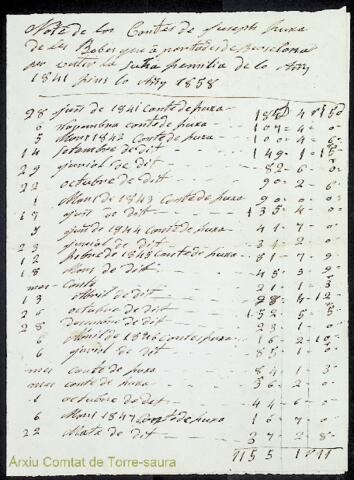 Note de los Contes de Juseph puxa
de las Robes que a portades de Barcelona
per la Sutia familia de lo Añy
1841 fins lo Añy 1858
28 juñ de 1841 Conte de puxa
6 Nopembra conte de puxa 107 4 0
5 Mars 1842 Conte de puxa 10 4 6
14 setembre de dit 149 1 15
29 juniol de dit 82 6 0
22 octubre de dit 90 2 6
1 Mars de 1843 Conte de puxa 9 0 0
17 juñ de dit 135 4 0
9 juñ de 1844 Conte de puxa 41 7 0
23 juniol de dit 34 2 0
12 febre de 1845 Conte de puxa 81 7 9
18 Mars de dit 45 3 9
mes Conte 21 1 3
13 Abril de dit 28 4 12
26 octubre de dit 152 5 5
28 Desembre de dit 23 1 0
6 Abril de 1846 Conte puxa 16 2 0
6 juniol de dit 85 1 0
mes conte de puxa 84 1 3
mes conte de puxa 36 2 0
1 octubre de dit 44 6 0
6 Mars 1847 Conte de puxa 16 7 0
22 de dit 37 2 8
Arxiu Comtat de Torre-saura